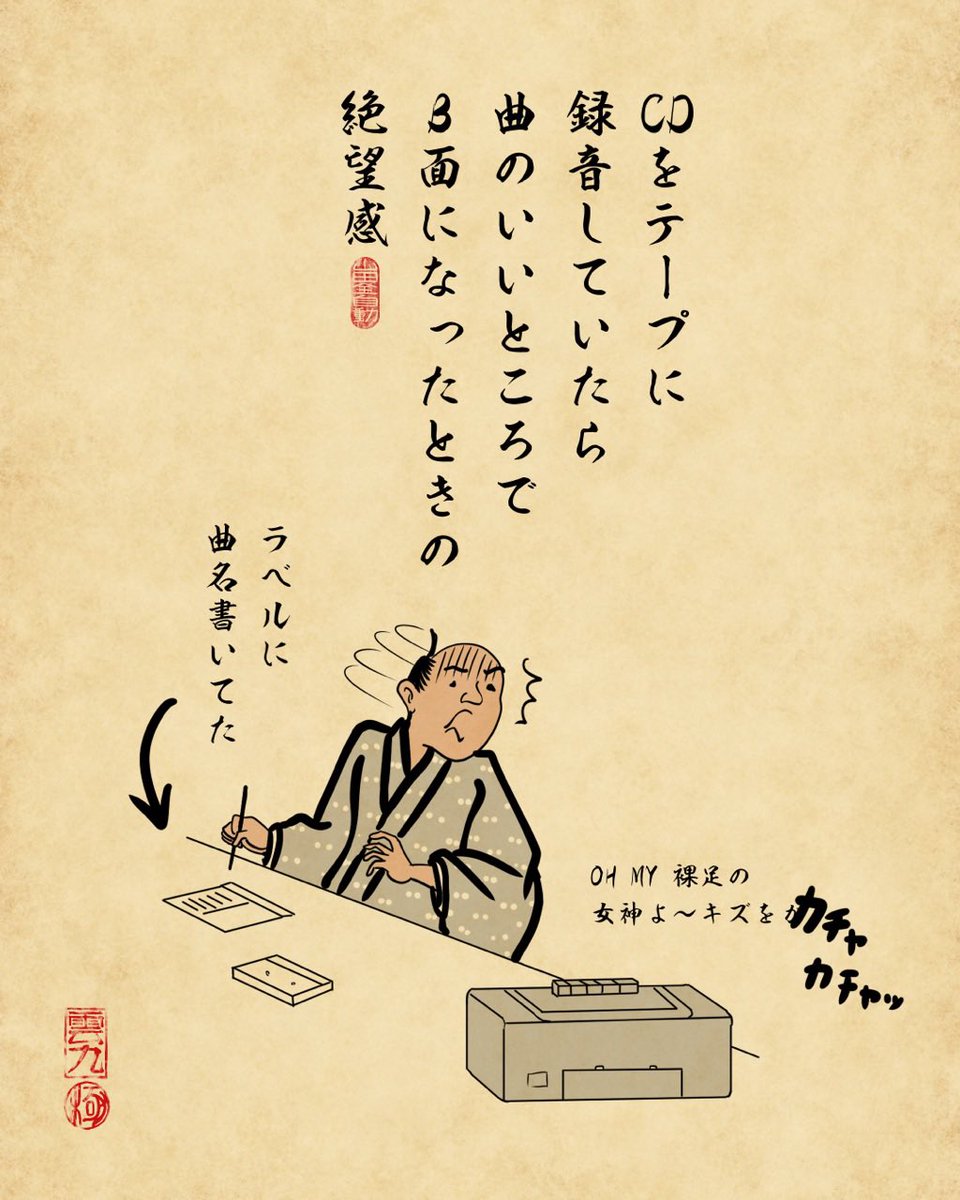 CDをテープに
録音していたら
曲のいいところで
B面になったときの
絶望感
ラベルに
曲名書いてた
OH MY 裸足の
女神よ〜キズをか
カチャ
カチャッ